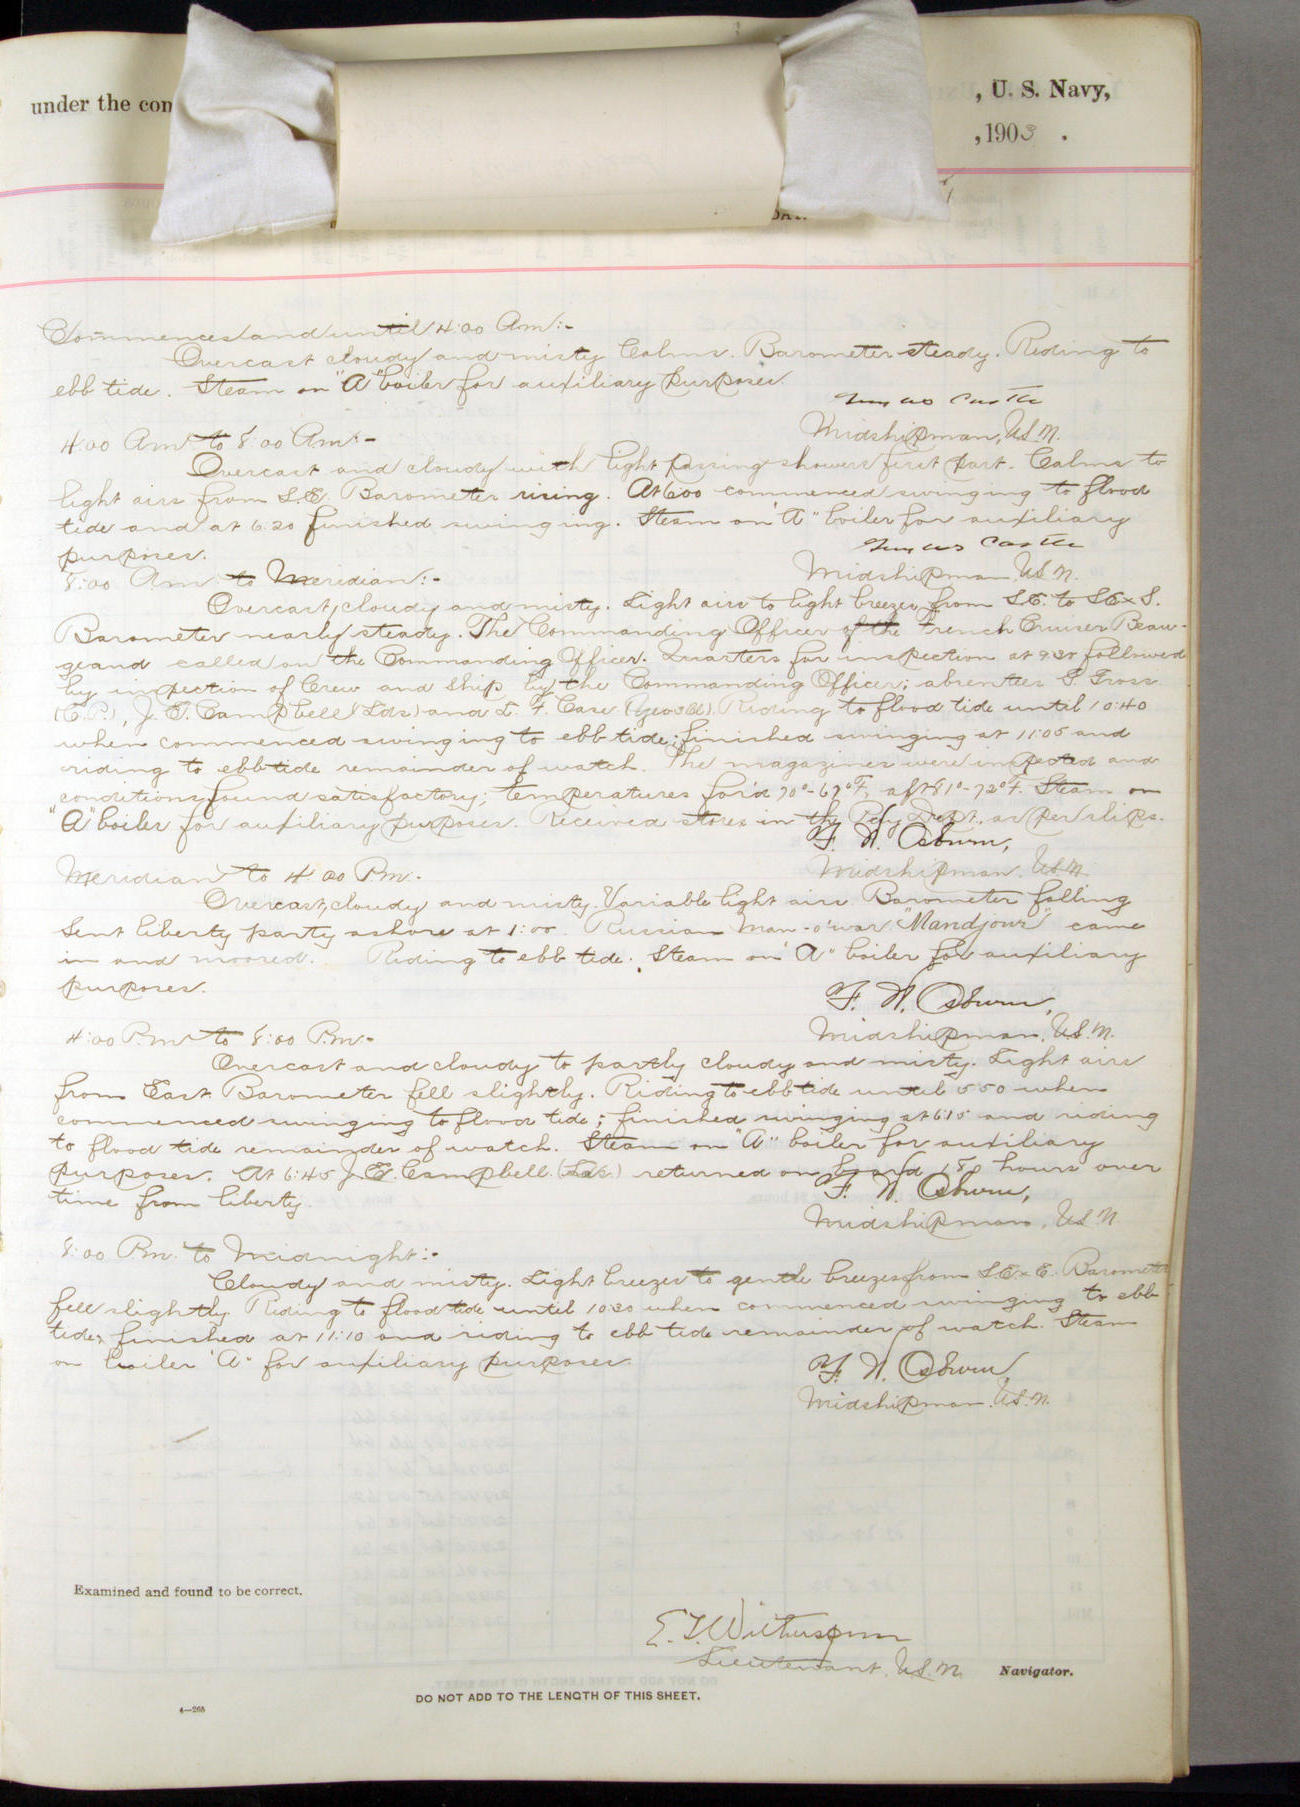 under the con
, U. S. Navy,
, 1903 .
Commences and until 4:00 Am:-
Overcast cloudy and misty Calms. Barometer steady. Riding to
ebb tide. Steam on "A" boiler for auxiliary purposes.
Castle
Midshipman, U.S.N.
4:00 Am to 8:00 Am:-
Overcast and cloudy with light passing showers first part. Calms to
light airs from S.E. Barometer rising. At 6:00 commenced swinging to flood
tide and at 6:20 finished swinging. Steam on "A" boiler for auxiliary
purposes.
Castle
Midshipman U.S.N.
8:00 Am to Meridian:-
Overcast, cloudy and misty. Light airs to light breezes from S.E. to S.ExS.
Barometer nearly steady. The Commanding Officer of the French Cruiser Beau-
geand called on the Commanding Officer. Quarters for inspection at 9:30 followed
by inspection of Crew and Ship by the Commanding Officer; absentees Gross
(C.P.), J. E. Campbell (Lds) and L. F. Case . Riding to flood tide until 10:40
when commenced swinging to ebb tide; finished swinging at 11:05 and
riding to ebb tide remainder of watch. The magazines were inspected and
conditions found satisfactory; temperatures for'd 70°-67°F, aft 81°-72°F. Steam on
"A" boiler for auxiliary purposes. Received stores in the Pay Dept. as per slips.
F. N. Osburn,
Midshipman U.S.N.
Meridian to 4:00 Pm.
Overcast, cloudy and misty. Variable light airs Barometer falling
Sent liberty party ashore at 1:00. Russian Man-o'war "Mandjour" came
in and moored. Riding to ebb tide. Steam on "A" boiler for auxiliary
purposes.
F. N. Osburn,
Midshipman, U.S.N.
4:00 P.m to 8:00 P.m-
Overcast and cloudy to partly cloudy and misty. Light airs
from East Barometer fell slightly. Riding to ebb tide until 5:50 when
commenced swinging to flood tide; finished swinging at 6:15 and riding
to flood tide remainder of watch. Steam on "A" boiler for auxiliary
purposes. At 6:45 J. E. Campbell (Lds.) returned on board hours over
time from liberty.
F. N. Osburn,
Midshipman, U.S.N.
8:00 P.m. to Midnight:-
Cloudy and misty. Light breezes to gentle breezes from S.ExE. Barometer
fell slightly Riding to flood tide until 10:30 when commenced swinging to ebb
tide, finished at 11:10 and riding to ebb tide remainder of watch. Steam
on boiler "A" for auxiliary purposes.
F. N. Osburn,
Midshipman, U.S.N.
Examined and found to be correct.
E. T. Witherspoon
Lieutenant, U.S.N. Navigator.
DO NOT ADD TO THE LENGTH OF THIS SHEET.
4—265